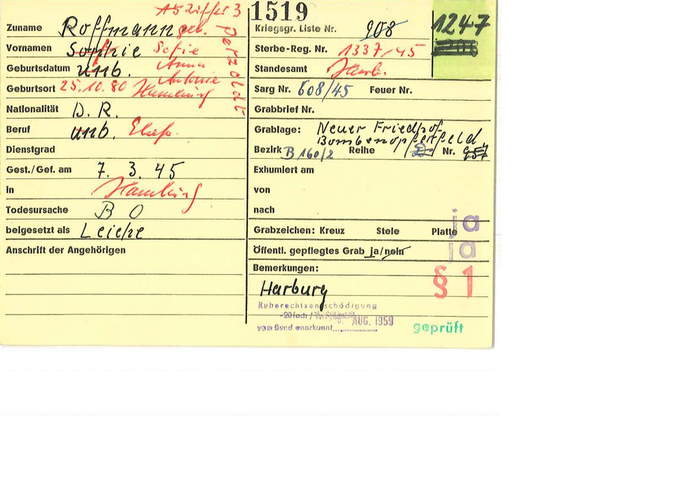 A5 Ziffer 3
1519
Zuname Roffmann geb. Petzoldt
Kriegsgr. Liste Nr. 908
1247
Vornamen Sophie Sofie
Anna
Antonie
Sterbe-Reg. Nr. 1337/45
Geburtsdatum unb.
Standesamt Harb.
Geburtsort 25.10.80 Hamburg
Sarg Nr. 608/45 Feuer Nr.
Nationalität D. R.
Grabbrief Nr.
Beruf unb. Ehefr.
Grablage: Neuer Friedhof
Bombenopferfeld
Dienstgrad
Bezirk B 160/2 Reihe Nr.
Gest./Gef. am 7. 3. 45
Exhumiert am
in Hamburg
von
Todesursache B O
nach
beigesetzt als Leiche
Grabzeichen: Kreuz Stele Platte ja
Anschrift der Angehörigen
Öffentl. gepflegtes Grab ja/nein ja
Bemerkungen: § 1
Harburg
Ruherechtsentschädigung
-20fach/
vom Bund anerkannt AUG. 1959
geprüft